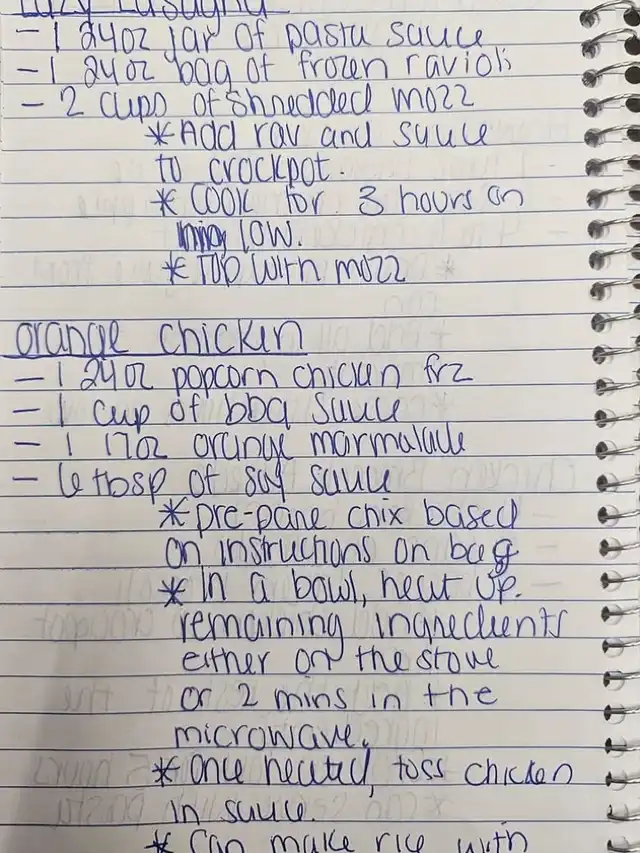 Lazy Lasagna
- 1 24oz jar of pasta sauce
- 1 24oz bag of frozen ravioli
- 2 cups of shredded mozz
* Add rav and sauce
to crockpot.
* Cook for 3 hours on
low.
* Top with mozz
orange chicken
- 1 24oz popcorn chicken frz
- 1 cup of bbq sauce
- 1 17oz orange marmalade
- 6 tbsp of soy sauce
* pre-pane chix based
on instructions on bag
* In a bowl, heat up
remaining ingredients
either on the stove
or 2 mins in the
microwave.
* Once heated, toss chicken
in sauce.
* Can make rice with